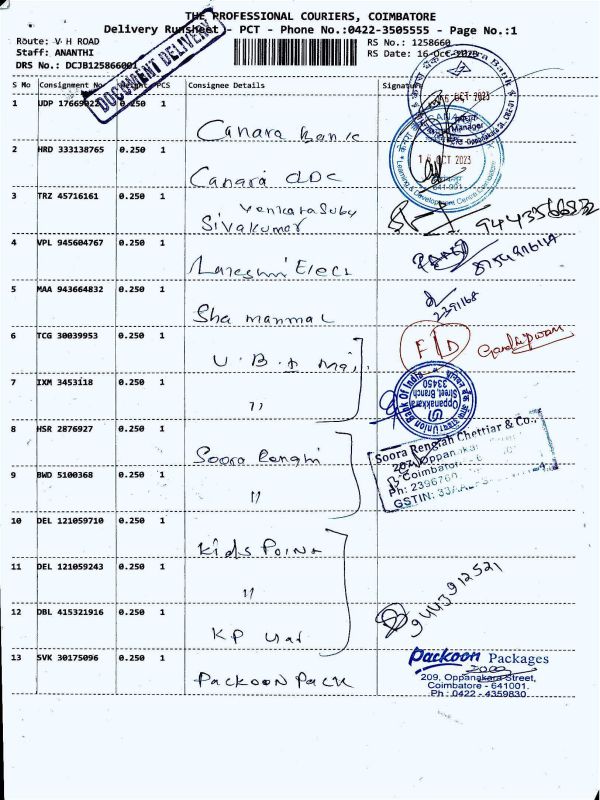 THE PROFESSIONAL COURIERS, COIMBATORE
Delivery Runsheet - PCT - Phone No.:0422-3505555 - Page No.:1
Route: V H ROAD
Staff: ANANTHI
DRS No.: DCJB125866001
RS No.: 1258660
RS Date: 16-Oct-2023
DOCUMENT DELIVERY
S No Consignment No. Weight PCS Consignee Details Signature
1 UDP 17669922 0.250 1 Canara Bank
16 OCT 2023
Manager
2 HRD 333138765 0.250 1 Canara CDC
16 OCT 2023
641-001
Learning & Development Centre Coimbatore
3 TRZ 45716161 0.250 1 Venkatasuby
Sivakumar
4 VPL 945604767 0.250 1 Lakshmi Elect
5 MAA 943664832 0.250 1 Sha manmal
2391168
6 TCG 30039953 0.250 1 U.B.I Main
F D Gandhipuram
7 IXM 3453118 0.250 1 "
Union Bank Of India
Oppanakkara
Street, Branch
33450
8 HSR 2876927 0.250 1 Soora Renghi
Soora Rengiah Chettiar & Co.,
Coimbatore
GSTIN:
9 BWD 5100368 0.250 1 "
10 DEL 121059710 0.250 1 Kids Point
11 DEL 121059243 0.250 1 "
9443912521
12 DBL 415321916 0.250 1 KP
13 SVK 30175096 0.250 1 Packoon Pack
Packoon Packages
209, Oppanakara Street,
Coimbatore - 641001.
Ph : 0422 - 4359830.